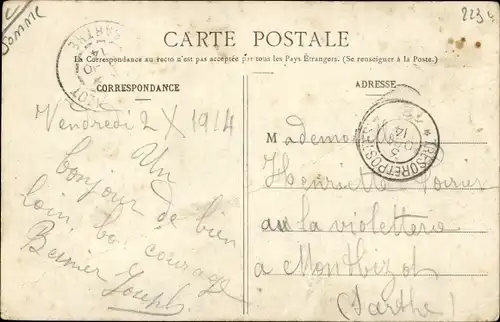 Somme
223
CARTE POSTALE
La Correspondance au recto n'est pas acceptée par tous les Pays Étrangers. (Se renseigner à la Poste.)
CORRESPONDANCE
ADRESSE
SARTHE
14
TRESOR ET POSTES
5
14
Vendredi 2 X 1914
Un
bonjour de bien
loin, bon courage
Bernier Joseph
Mademoiselle
Henriette Poirier
au la violetterie
a Montbizot
(Sarthe)